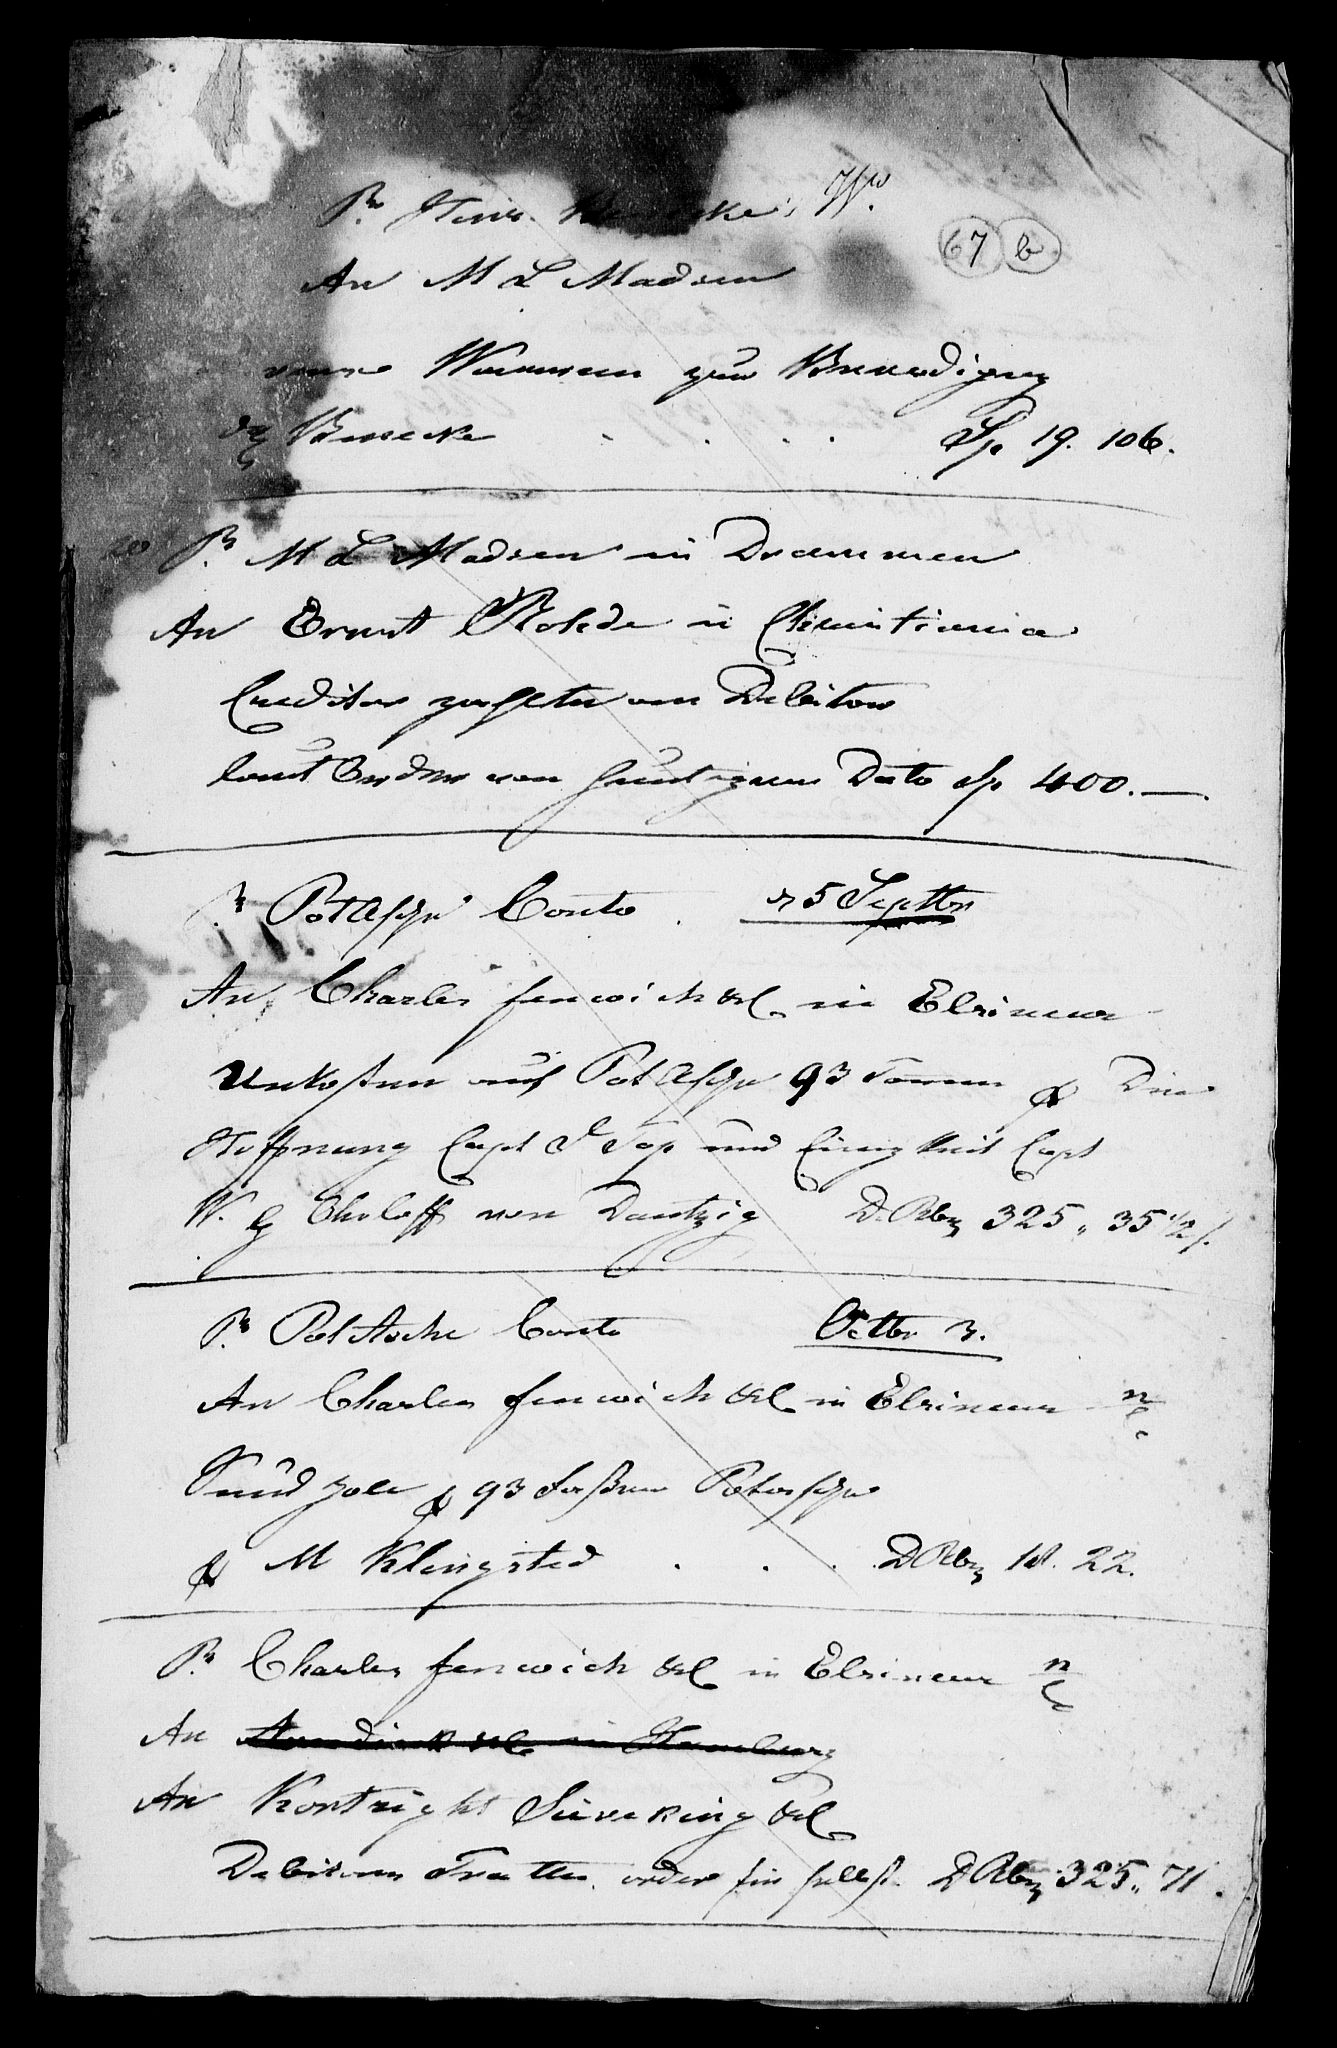 Pr Hinr. Benecke's Ww.
67 b
An M L Madsen
zur
Benecke . . . . Sp 19. 106.
Pr M L Madsen in Drammen
An Ernst Rohde in Christiania
Creditor zahlten an Debitor
laut Order von heutigem Dato Sp 400.—
Pr PotAsche Conto . d 5 Septbr
An Charles Fenwick & C in Elsineur
Unkosten auf PotAsche 93 Tonnen pr Die
Hoffnung Capt J Top und Einigkeit Capt
W. G Choleff von Dantzig D. Rbz 325 „ 35 1/2 s.
Pr PotAsche Conto Octbr 3.
An Charles Fenwick & C in Elsineur n/c
Sund Zoll pr 93 Fässer Potasche
pr M Klingsted . . . D Rbz 18. 22.
Pr Charles Fenwick & C in Elsineur n/c
An & C in Hamburg
An Kortright Sieveking & C
Debitoren Tratte order sein selbst D Rbz 325 „ 71.